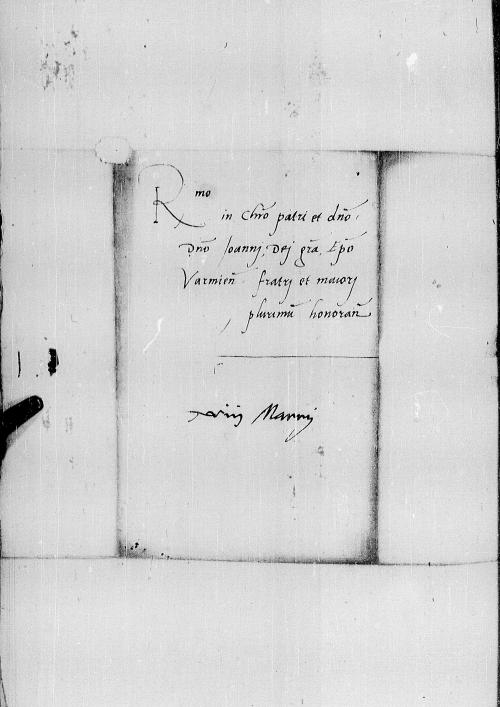 Rmo
in Chro patri et dño
Dño Joannj Dej gra Epo
Varmien̄ fratrj et maiorj
plurimū honoran̄
xviij